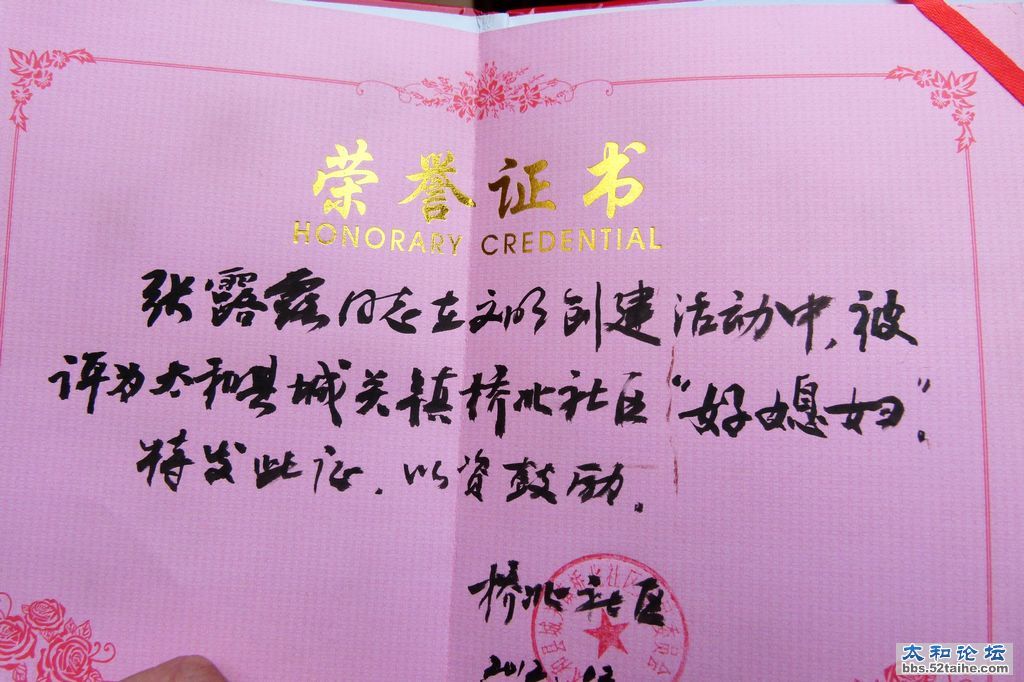 荣誉证书
HONORARY CREDENTIAL
张露露同志在文明创建活动中，被
评为太和县城关镇桥北社区“好媳妇”。
特发此证，以资鼓励。
桥北社区
2012.
太和论坛
bbs.52taihe.com